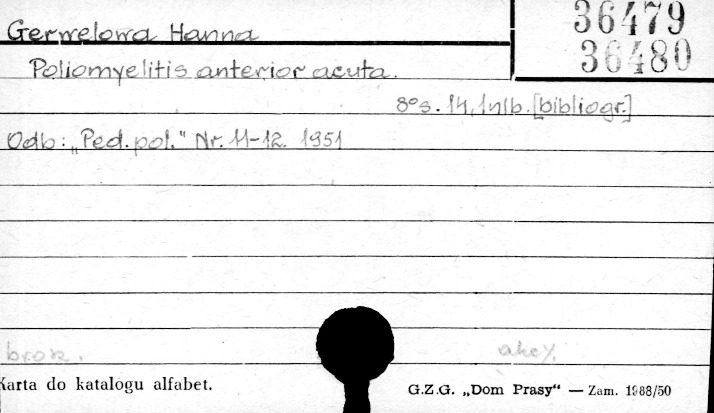 36479
Gerwelowa Hanna
36480
Poliomyelitis anterior acuta.
8° s. 14, 1 nlb. [bibliogr.]
Odb: „Ped. pol." Nr. 11-12. 1951
brosz.
Karta do katalogu alfabet.
G.Z.G. „Dom Prasy“ — Zam. 1988/50